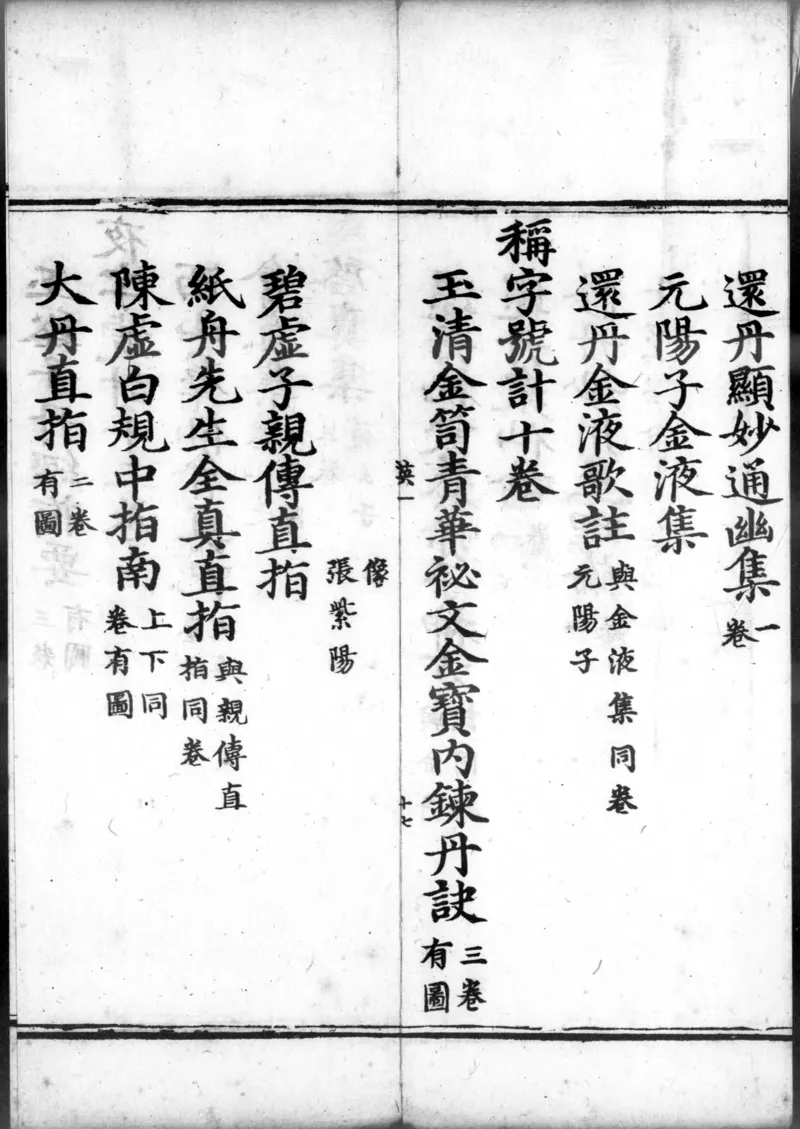 還丹顯妙通幽集一卷
元陽子金液集
還丹金液歌註與金液集同卷元陽子
稱字號計十卷
玉清金笥青華祕文金寶内鍊丹訣三卷有圖
英一
十七
像張紫陽
碧虛子親傳直指
紙舟先生全真直指與親傳直指同卷
陳虛白規中指南上下同卷有圖
大丹直指二卷有圖